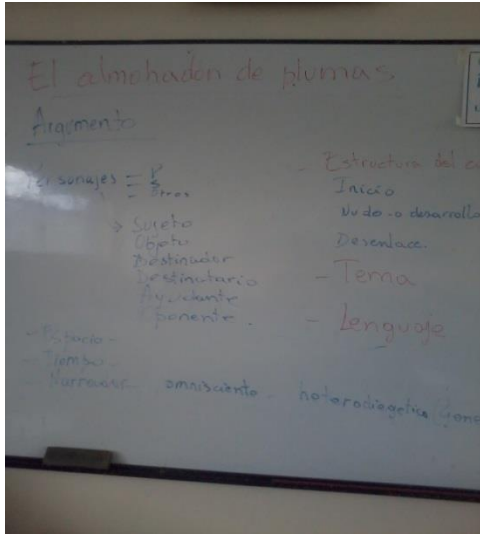 El almohadon de plumas.
Argumento
Personajes = P
S
Otros
→ Sujeto
Objeto
Destinador
Destinatario
Ayudante
Oponente.
- Espacio -
- Tiempo -
- Narrador - omnisciente - heterodiegetico
- Estructura del
Inicio
Nudo o desarrollo
Desenlace.
- Tema
- Lenguaje